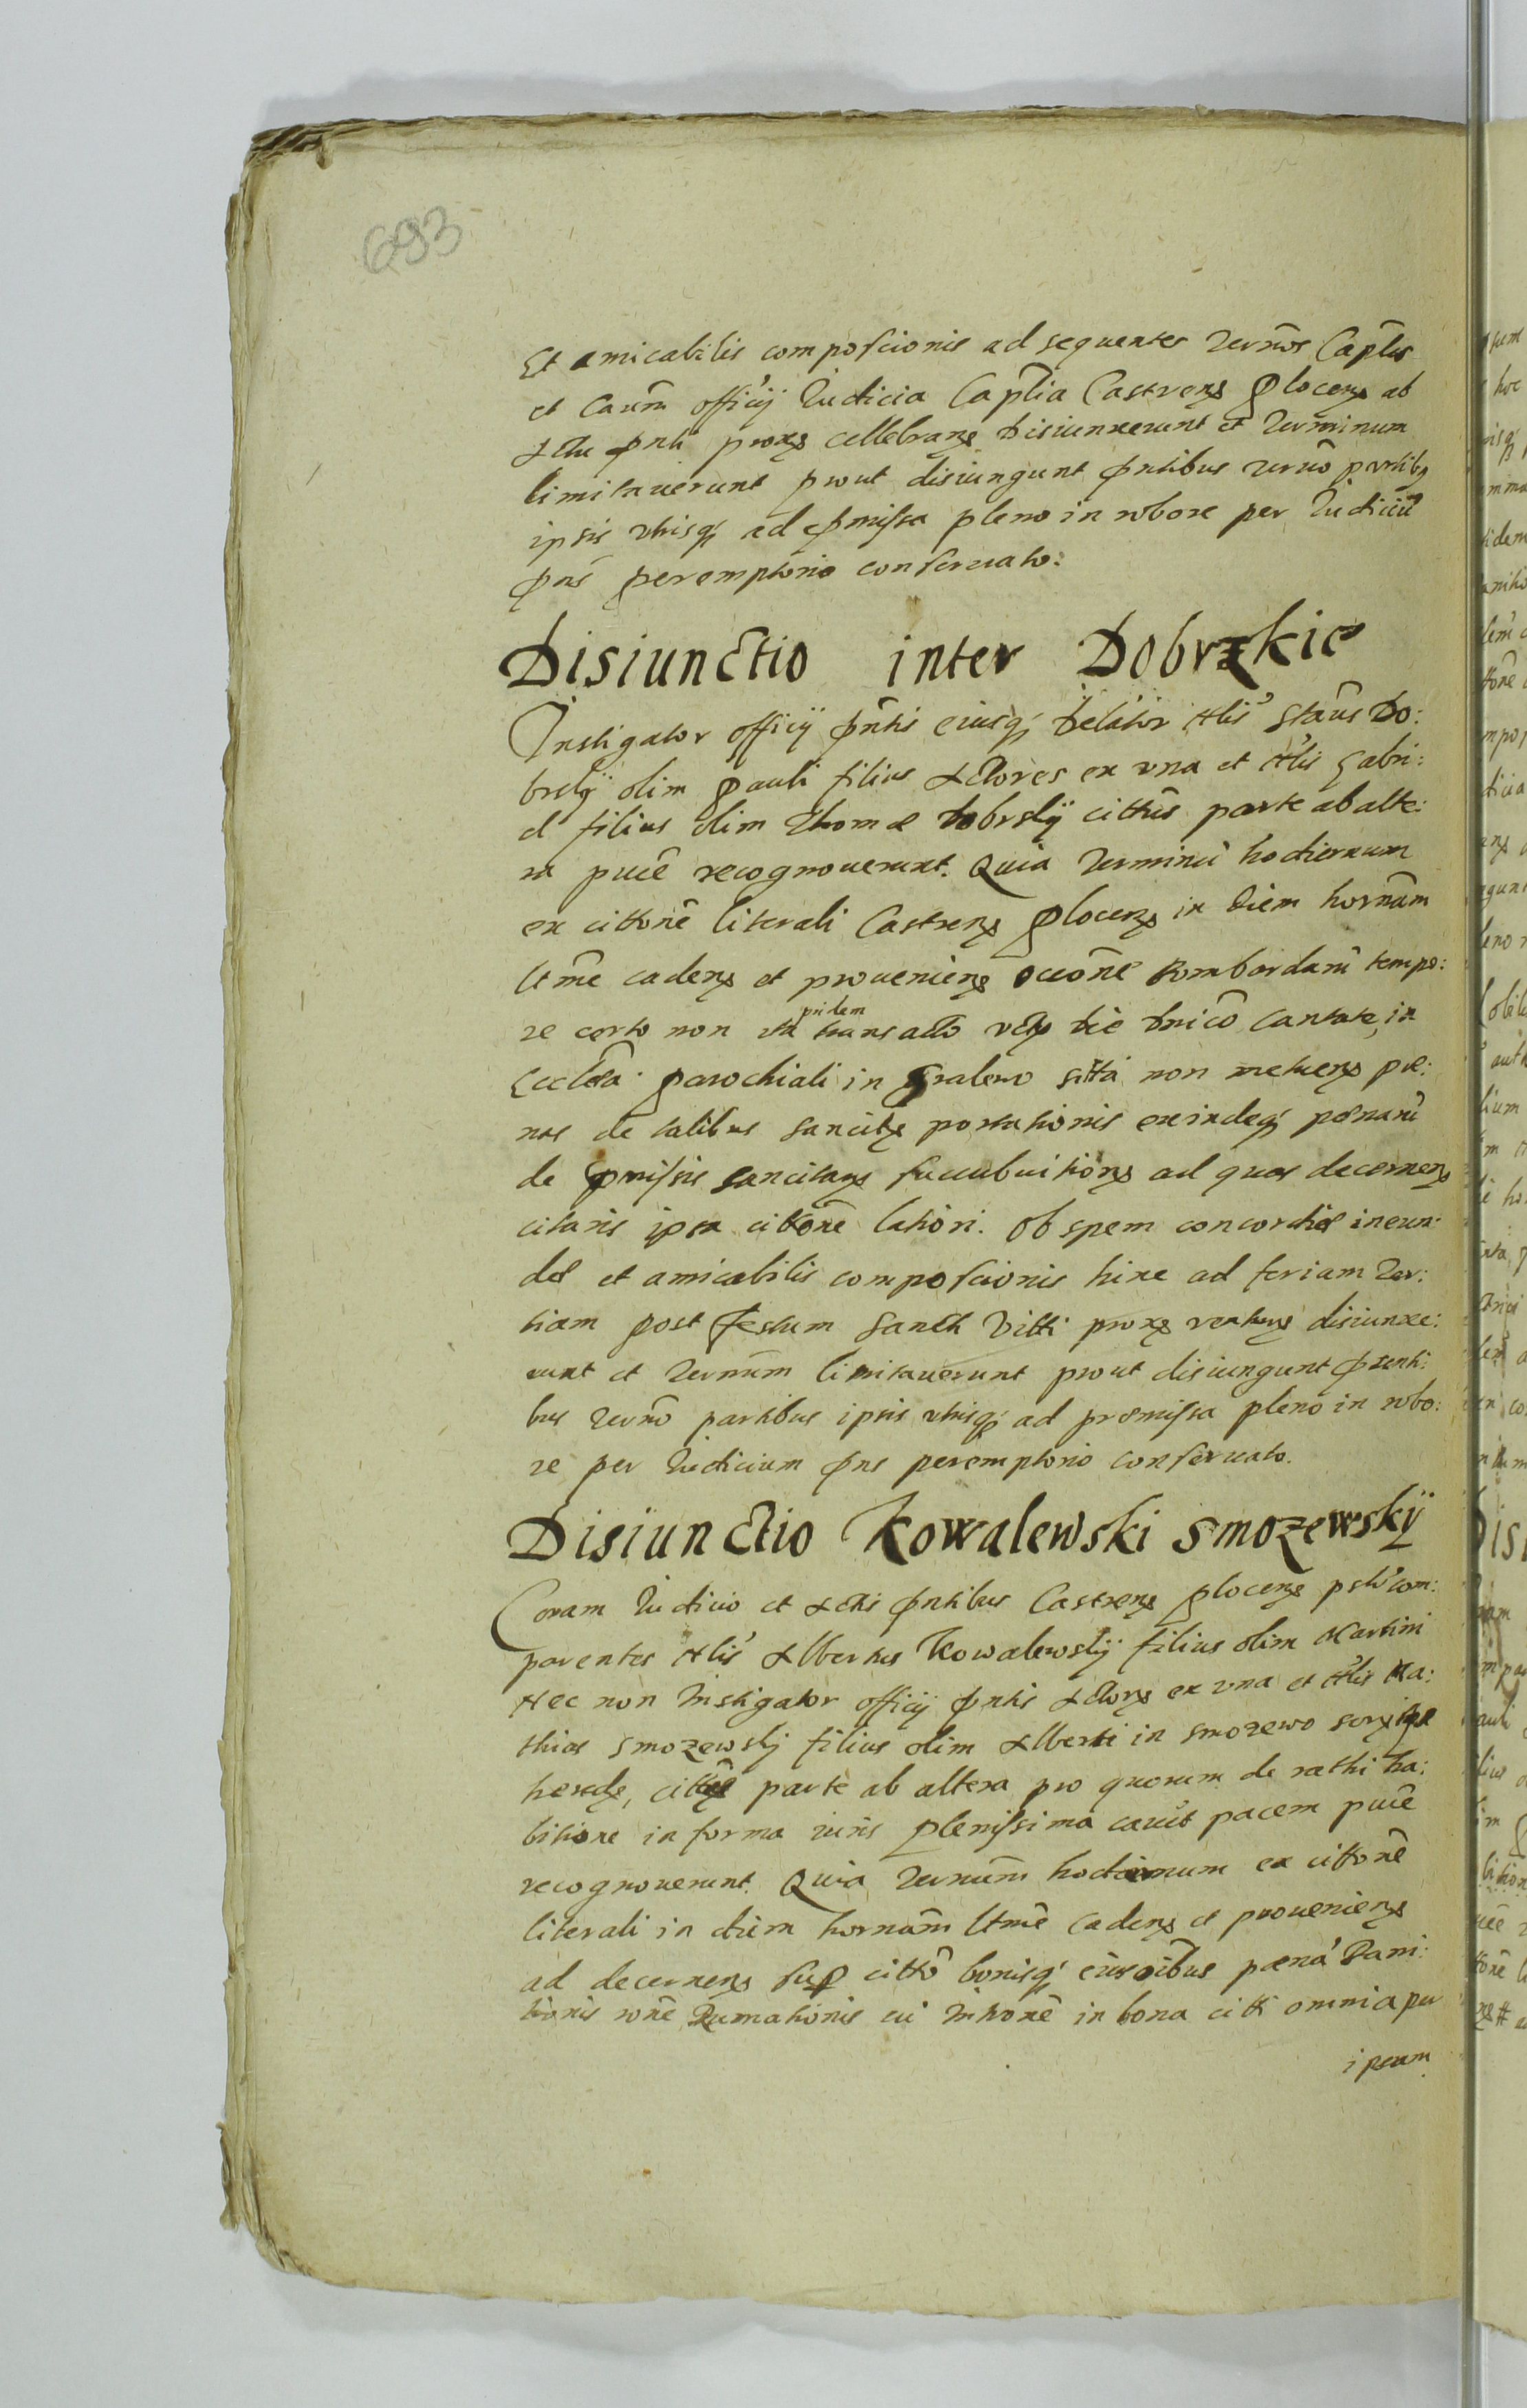 693
Et amicabilis composcionis ad sequentes Termos Caples
et Caum officij Judicia Captia Castrens Plocens ab
Actu pnti proxe cellebrans Disiunxerunt et Terminum
limitaverunt prout disiungunt pntibus termo partibus
ipsis vtrisq ad pmissa pleno in robore per Judiciu
pns peremptorio conservato:
Disiunctio inter Dobrzkie
Instigator officij pntis eiusq Delator Nlis Staus Do:
brsky olim Pauli filius Actores ex vna et Nlis Gabri:
el filius olim Thomæ Dobrsky cittus parte ab alte:
ra puce recognoverunt. Quia Terminu hodiernum
ex cittone literali Castrens Plocens in Diem hornam
ltme cadens et proueniens occone Bombardaru tempo:
re certo non ita pridem transacto vtp die dnico Cantate, in
Ecclesa parochiali in Gralewo sitta non metuens pæ:
nas de talibus sancite portationis exindeq pænaru
de pmissis sancitas succubuitions ad quas decernens
citatis ipsa cittone latiori. Ob spem concordiæ ineun:
dæ et amicabilis composcionis hinc ad feriam Ter:
tiam post festum Sancti Vitti proxe venturu disiunxe:
runt et Termum limitaverunt prout disiungunt pzenti:
bus termo partibus ipsis vtrisq ad præmissa pleno in robo:
re per Judicium pns peremptorio conservato.
Disiunctio Kowalewski Smozewsky
Coram Judicio et Actis pntibus Castrens Plocens psltr com:
parentes Nlis Albertus Kowalewsky filius olim Martini
Nec non Instigator officij pntis Actores ex vna et Nlis Ma:
thias Smozewsky filius olim Alberti in Smozewo
heredes, parte ab altera pro quorum de rathi ha:
bitione in forma iuris plenissima cavit pacem puce
recognoverunt. Quia Termum hodiernum ex cittone
literali in diem hornam ltme cadens et proueniens
ad decernens sup citto bonisq eius oibus pæna Bani:
tionis rone Rumationis cu introne in bona citti omnia per
ipsum